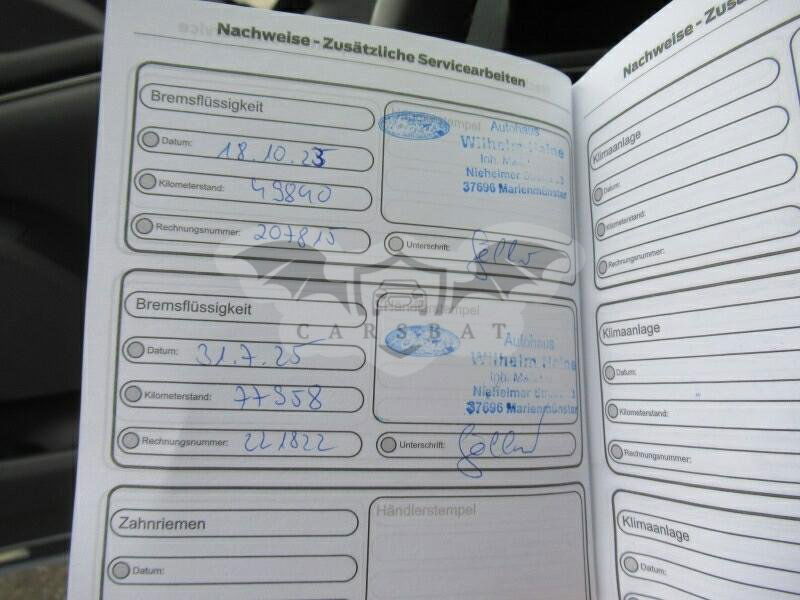 Nachweise - Zusätzliche Servicearbeiten
Bremsflüssigkeit
Datum: 18.10.23
Kilometerstand: 49840
Rechnungsnummer: 207815
Autohaus
Wilhelm Heine
Inh.
Nieheimer
37696 Marienmünster
Unterschrift:
Bremsflüssigkeit
Datum: 31.7.25
Kilometerstand: 77958
Rechnungsnummer: 221822
Händlerstempel
Autohaus
Wilhelm Heine
Inh.
Nieheimer
37696 Marienmünster
Unterschrift:
CARSBAT
Zahnriemen
Datum:
Händlerstempel
Nachweise - Zusä
Klimaanlage
Datum:
Kilometerstand:
Rechnungsnummer:
Klimaanlage
Datum:
Kilometerstand:
Rechnungsnummer:
Klimaanlage
Datum: